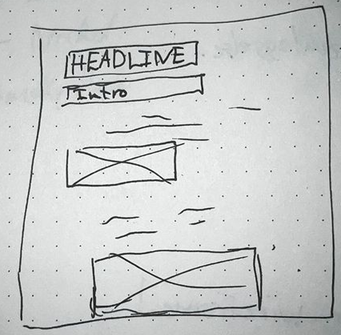 HEADLINE
Intro